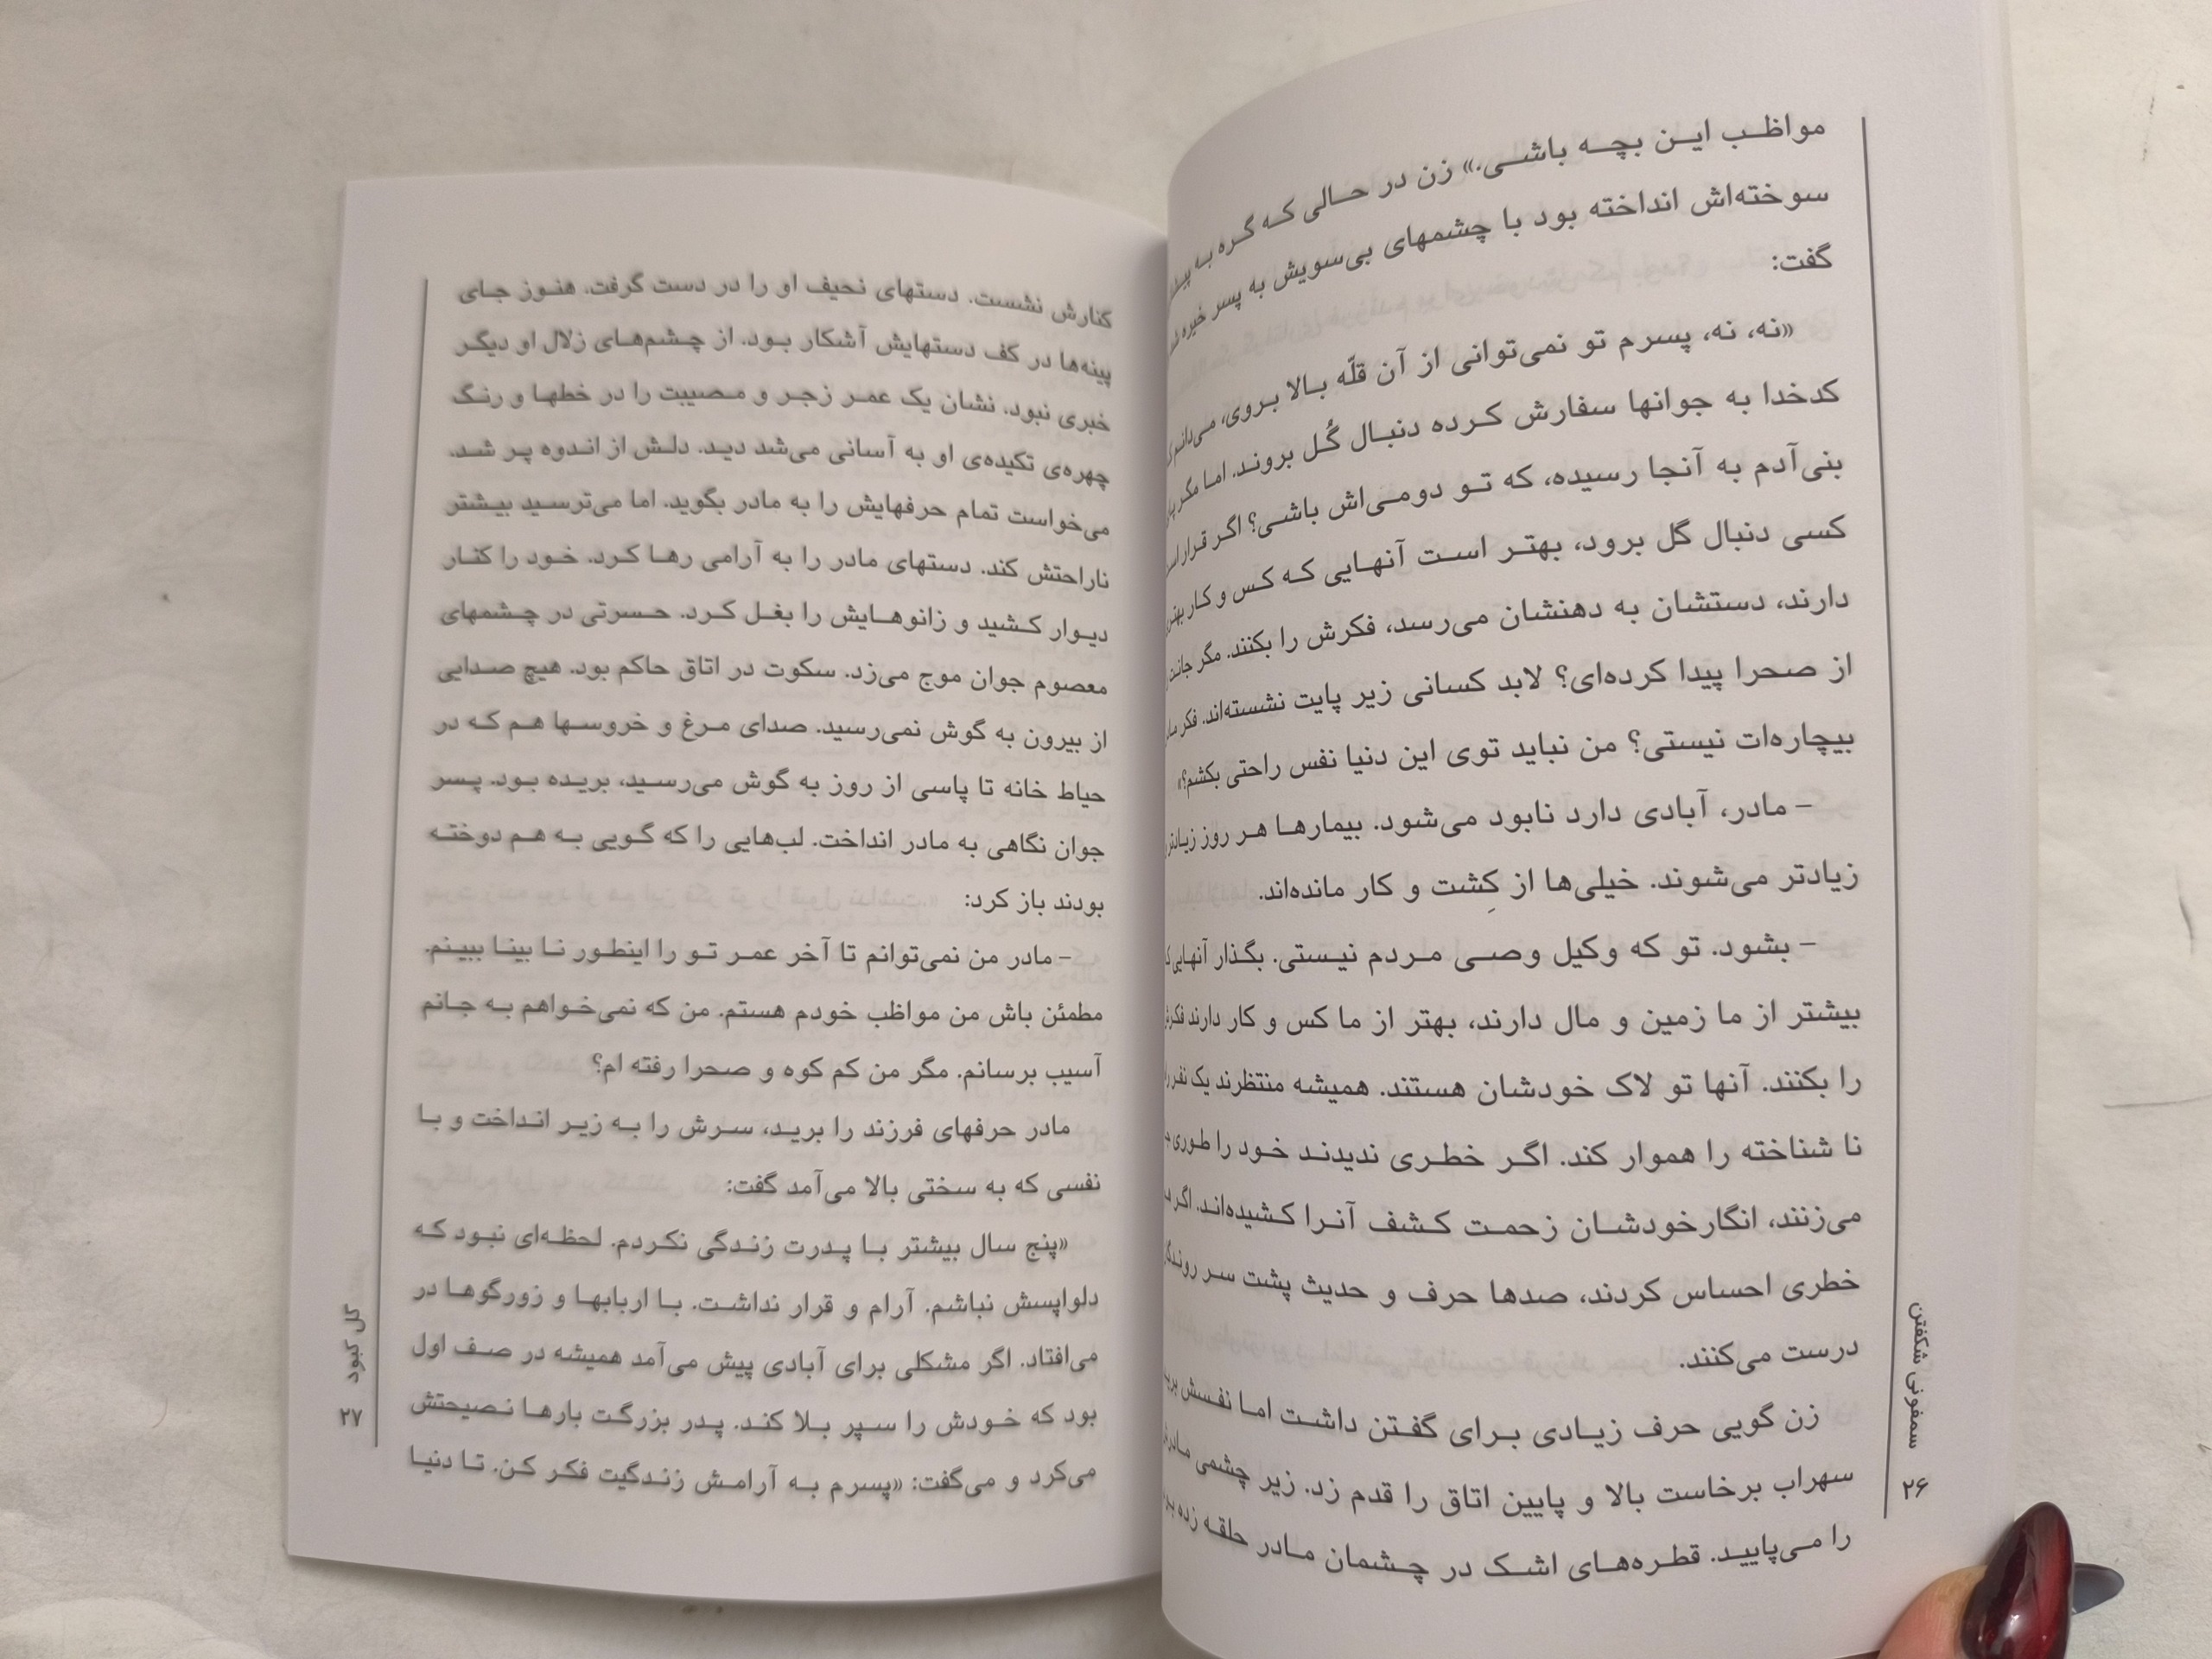 مواظب این بچه باشی.» زن در حالی که گره به
سوخته‌اش انداخته بود با چشمهای بی‌سویش به پسر خیره
گفت:
«نه، نه، پسرم تو نمی‌توانی از آن قلّه بالا بروی، می‌دانم
کدخدا به جوانها سفارش کرده دنبال گُل بروند. اما مگر
بنی‌آدم به آنجا رسیده، که تو دومی‌اش باشی؟ اگر قرار
کسی دنبال گل برود، بهتر است آنهایی که کس و کار
دارند، دستشان به دهنشان می‌رسد، فکرش را بکنند. مگر جانت
از صحرا پیدا کرده‌ای؟ لابد کسانی زیر پایت نشسته‌اند. فکر
بیچاره‌ات نیستی؟ من نباید توی این دنیا نفس راحتی بکشم؟»
– مادر، آبادی دارد نابود می‌شود. بیمارها هر روز
زیادتر می‌شوند. خیلی‌ها از کِشت و کار مانده‌اند.
– بشود. تو که وکیل وصی مردم نیستی. بگذار آنهایی
بیشتر از ما زمین و مال دارند، بهتر از ما کس و کار دارند
را بکنند. آنها تو لاک خودشان هستند. همیشه منتظرند یک نفر
نا شناخته را هموار کند. اگر خطری ندیدند خود را طوری
می‌زنند، انگارخودشان زحمت کشف آنرا کشیده‌اند. اگر
خطری احساس کردند، صدها حرف و حدیث پشت سر
درست می‌کنند.
زن گویی حرف زیادی برای گفتن داشت اما نفسش
سهراب برخاست بالا و پایین اتاق را قدم زد. زیر چشمی
را می‌پایید. قطره‌های اشک در چشمان مادر حلقه زده
سمفونی شکفتن
۲۶
کنارش نشست. دستهای نحیف او را در دست گرفت. هنوز جای
پینه‌ها در کف دستهایش آشکار بود. از چشم‌های زلال او دیگر
خبری نبود. نشان یک عمر زجر و مصیبت را در خطها و رنگ
چهره‌ی تکیده‌ی او به آسانی می‌شد دید. دلش از اندوه پر شد.
می‌خواست تمام حرفهایش را به مادر بگوید. اما می‌ترسید بیشتر
ناراحتش کند. دستهای مادر را به آرامی رها کرد. خود را کنار
دیوار کشید و زانوهایش را بغل کرد. حسرتی در چشمهای
معصوم جوان موج می‌زد. سکوت در اتاق حاکم بود. هیچ صدایی
از بیرون به گوش نمی‌رسید. صدای مرغ و خروسها هم که در
حیاط خانه تا پاسی از روز به گوش می‌رسید، بریده بود. پسر
جوان نگاهی به مادر انداخت. لب‌هایی را که گویی به هم دوخته
بودند باز کرد:
– مادر من نمی‌توانم تا آخر عمر تو را اینطور نا بینا ببینم.
مطمئن باش من مواظب خودم هستم. من که نمی‌خواهم به جانم
آسیب برسانم. مگر من کم کوه و صحرا رفته ام؟
مادر حرفهای فرزند را برید، سرش را به زیر انداخت و با
نفسی که به سختی بالا می‌آمد گفت:
«پنج سال بیشتر با پدرت زندگی نکردم. لحظه‌ای نبود که
دلواپسش نباشم. آرام و قرار نداشت. با اربابها و زورگوها در
می‌افتاد. اگر مشکلی برای آبادی پیش می‌آمد همیشه در صف اول
بود که خودش را سپر بلا کند. پدر بزرگت بارها نصیحتش
می‌کرد و می‌گفت: «پسرم به آرامش زندگیت فکر کن. تا دنیا
گل کبود
۲۷